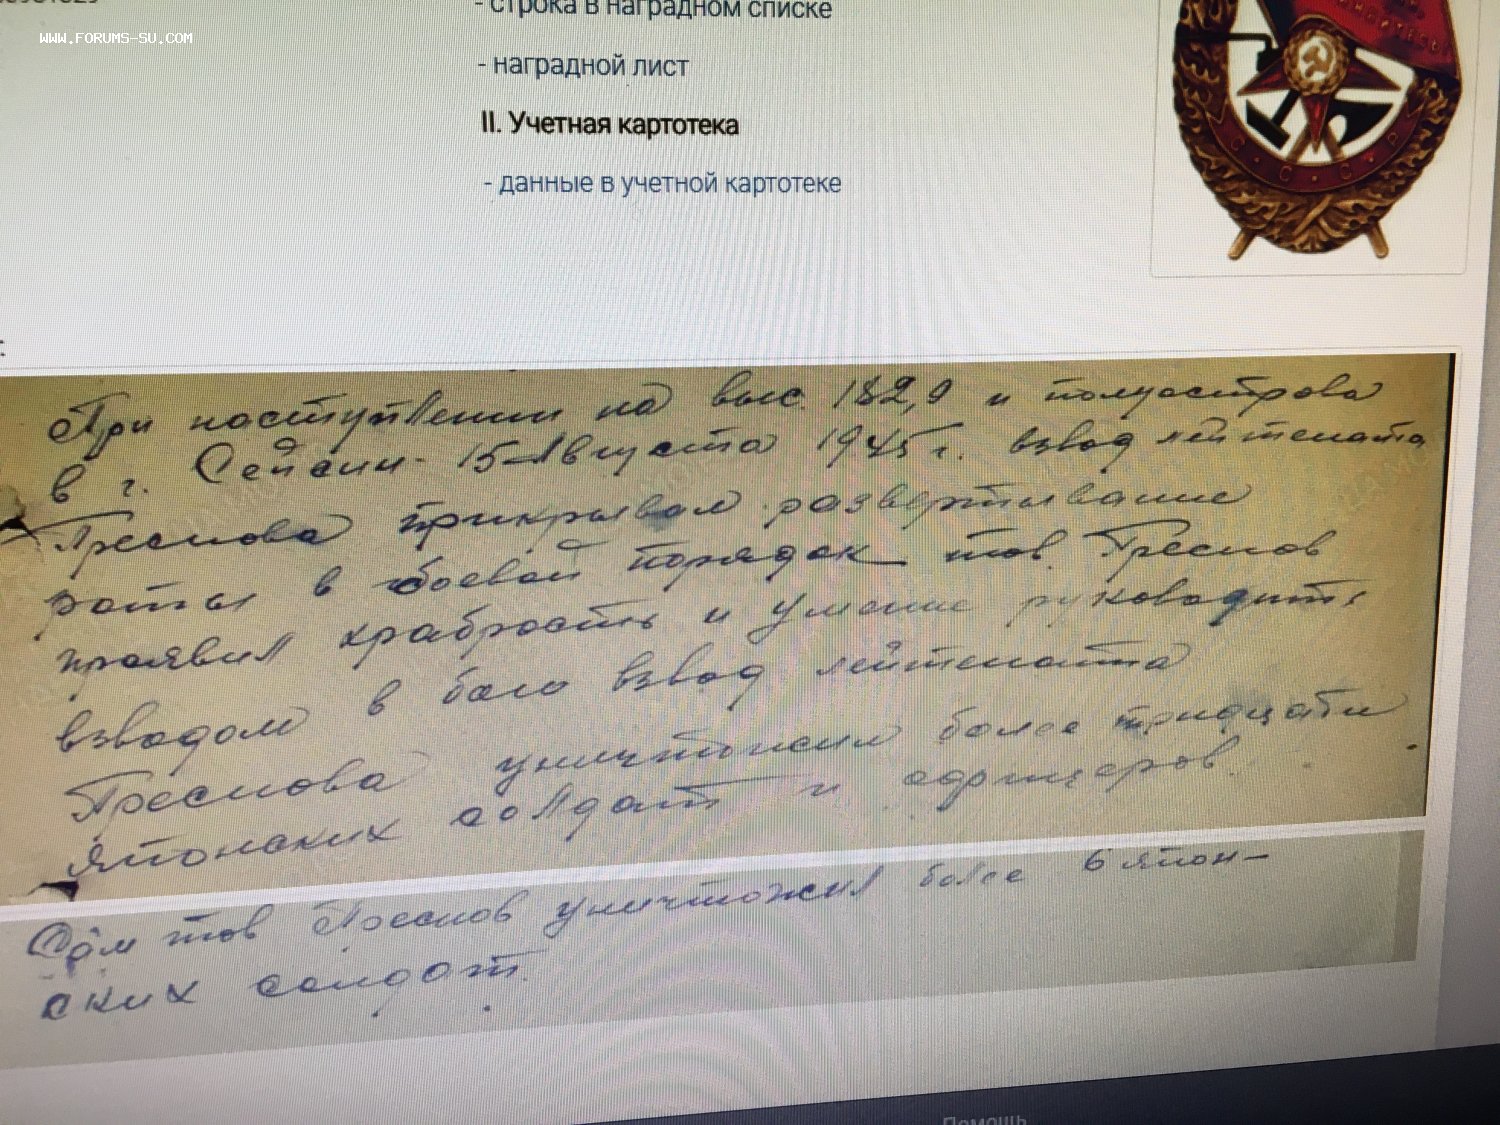 - строка в наградном списке
WWW.FORUMS-SU.COM
- наградной лист
II. Учетная картотека
- данные в учетной картотеке
При наступлении на выс. 182,9 и полуострова
в г. Сейсин 15 Августа 1945 г. взвод лейтенанта
Преснова прикрывал развертывание
роты в боевой порядок тов. Преснов
проявил храбрость и умение руководить
взводом в бою взвод лейтенанта
Преснова уничтожил более тридцати
японских солдат и офицеров.
Сам тов Преснов уничтожил более 6 япон-
ских солдат.
Помощь